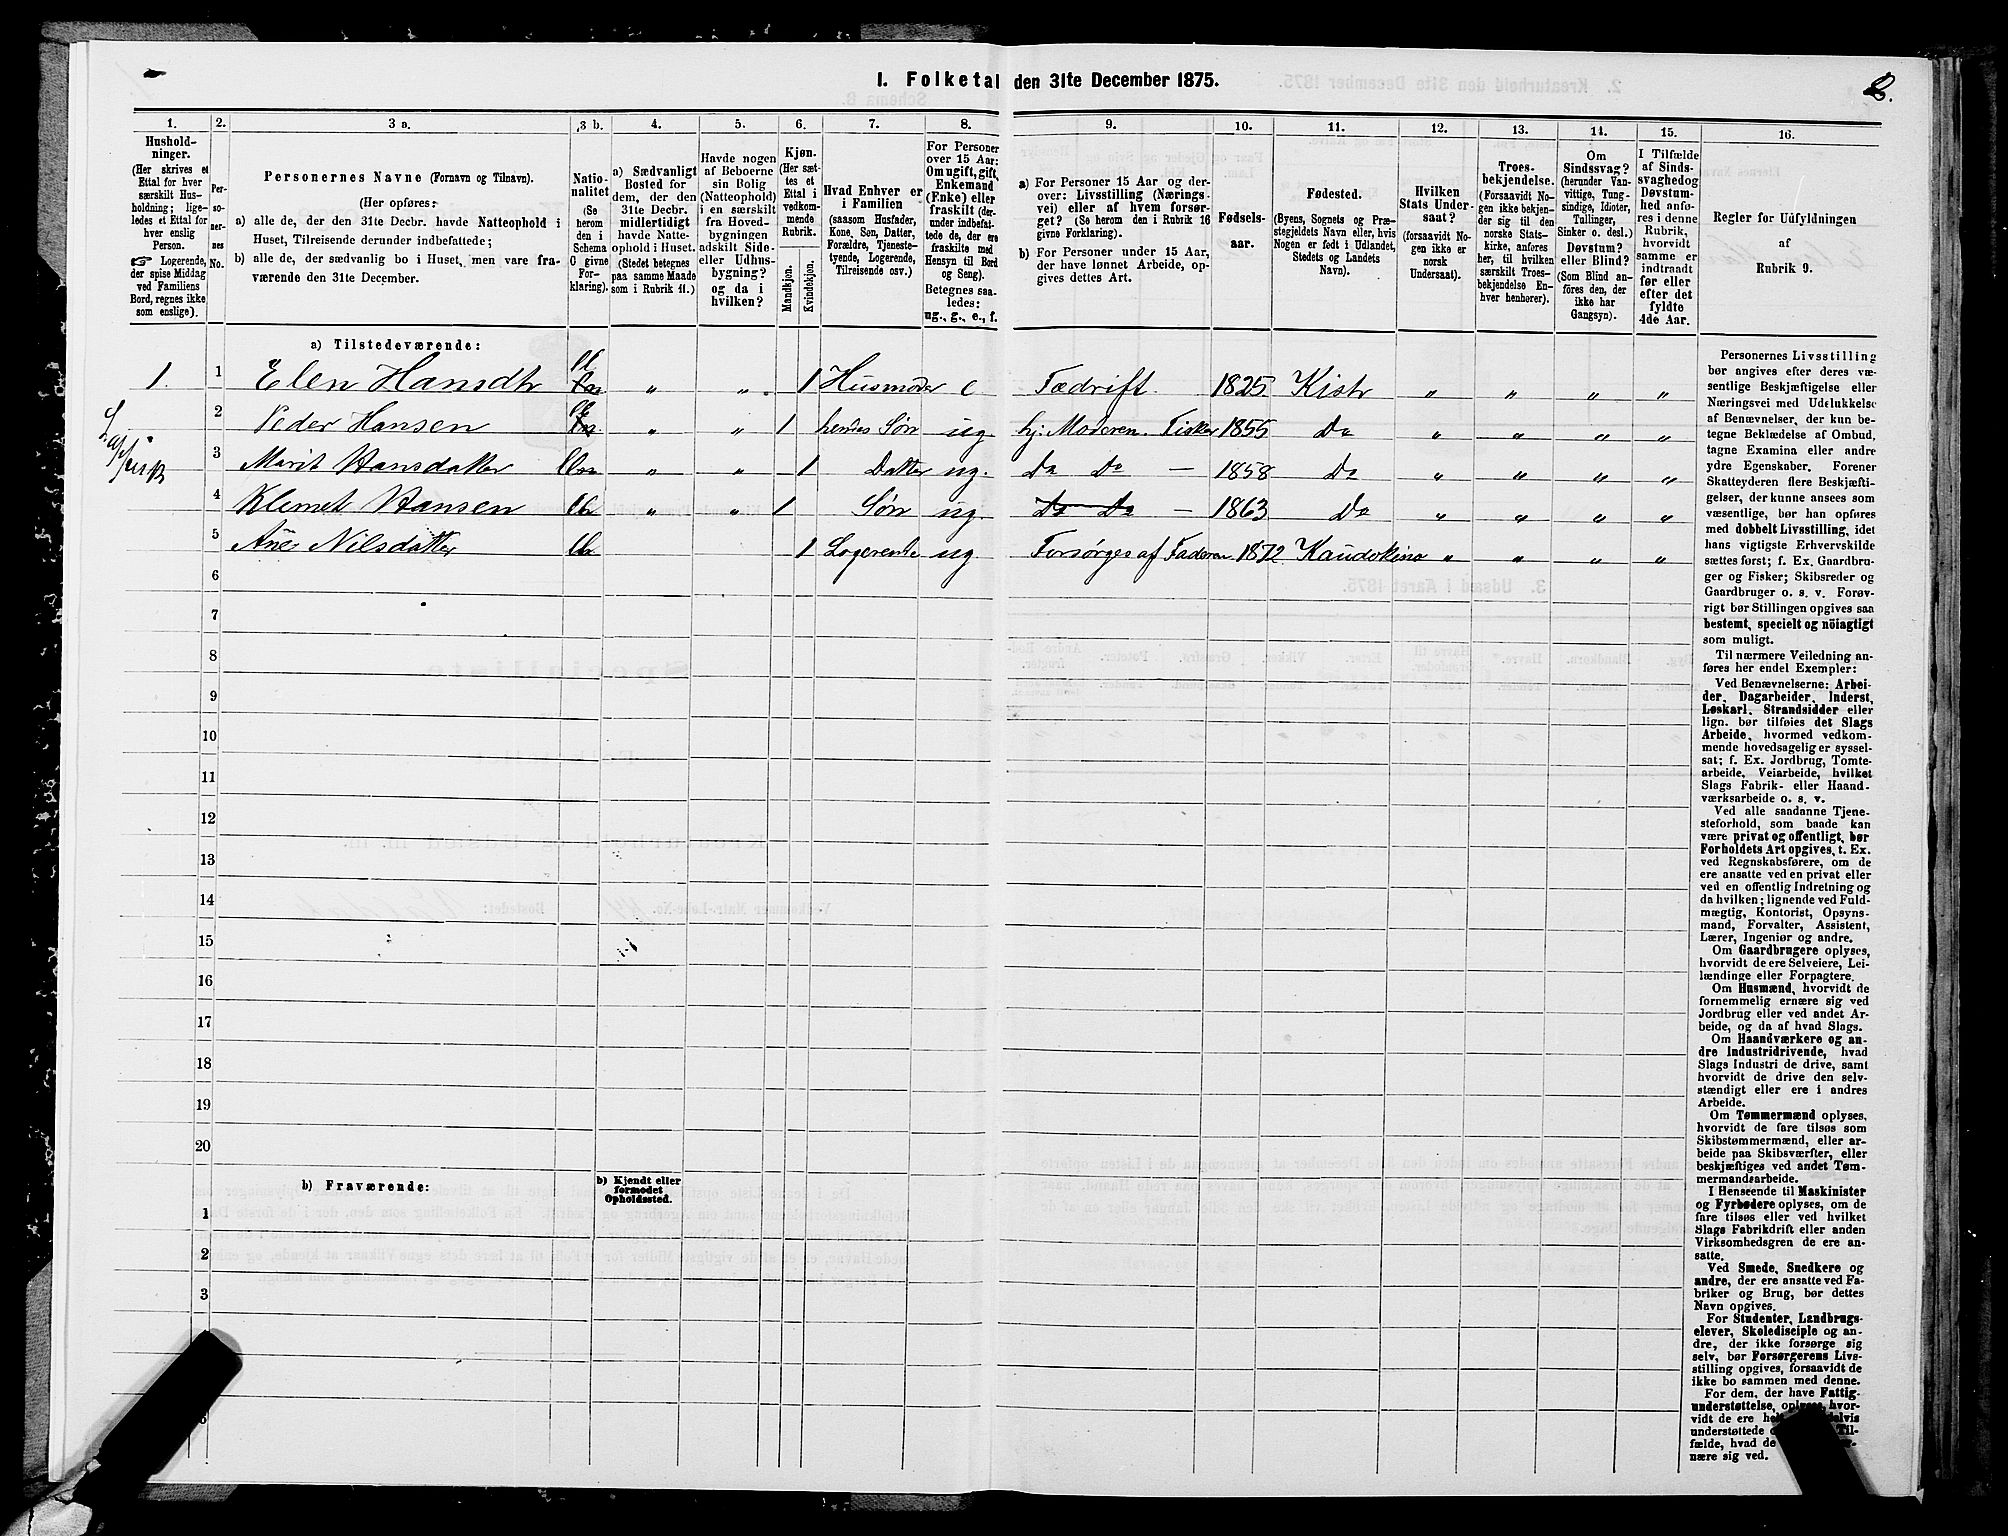 I. Folketal den 31te December 1875.
2.
1.
2.
3 a.
3 b.
4.
5.
6.
7.
8.
9.
10.
11.
12.
13.
14.
15.
16.
Hushold-
ninger.
(Her skrives et
Ettal for hver
særskilt Hus-
holdning; lige-
ledes et Ettal for
hver enslig
Person.
☞ Logerende,
der spise Middag
ved Familiens
Bord, regnes ikke
som enslige).
Per-
so-
ner-
nes
No.
Personernes Navne (Fornavn og Tilnavn).
(Her opføres:
a) alle de, der den 31te Decbr. havde Natteophold i
Huset, Tilreisende derunder indbefattede;
b) alle de, der sædvanlig bo i Huset, men vare fra-
værende den 31te December.
Natio-
nalitet
(Se
herom
den i
Schema
C givne
For-
klaring).
a) Sædvanligt
Bosted for
dem, der den
31te Decbr.
midlertidigt
havde Natte-
ophold i Huset.
(Stedet betegnes
paa samme Maade
som i Rubrik 11.)
Havde nogen
af Beboerne
sin Bolig
(Natteophold)
i en særskilt
fra Hoved-
bygningen
adskilt Side-
eller Udhus-
bygning?
og da i
hvilken?
Kjøn.
(Her sæt-
tes et
Ettal i
vedkom-
mende
Rubrik.
Mandkjøn.
Kvindekjøn.
Hvad Enhver er
i Familien
(saasom Husfader,
Kone, Søn, Datter,
Forældre, Tjeneste-
tyende, Logerende,
Tilreisende osv.)
For Personer
over 15 Aar:
Om ugift, gift,
Enkemand
(Enke) eller
fraskilt (der-
under indbefat-
tede de, der ere
fraskilte med
Hensyn til Bord
og Seng).
Betegnes saa-
ledes:
ug., g., e., f.
a) For Personer 15 Aar og der-
over: Livsstilling (Nærings-
vei) eller af hvem forsør-
get? (Se herom den i Rubrik 16
givne Forklaring).
b) For Personer under 15 Aar,
der have lønnet Arbeide, op-
gives dettes Art.
Fødsels-
aar.
Fødested.
(Byens, Sognets og Præ-
stegjeldets Navn eller, hvis
Nogen er født i Udlandet,
Stedets og Landets
Navn).
Hvilken
Stats Under-
saat?
(forsaavidt No-
gen ikke er
norsk
Undersaat).
Troes-
bekjendelse.
(Forsaavidt No-
gen ikke bekjen-
der sig til den
norske Stats-
kirke, anføres
her, til hvilken
særskilt Troes-
bekjendelse En-
hver henhører).
Om
Sindssvag?
(herunder Van-
vittige, Tung-
sindige, Idioter,
Tullinger,
Sinker o. desl.)
Døvstum?
eller Blind?
(Som Blind an-
føres den, der
ikke har
Gangsyn).
I Tilfælde
af Sinds-
svaghed og
Døvstum-
hed anfø-
res i denne
Rubrik,
hvorvidt
samme er
indtraadt
før eller
efter det
fyldte
4de Aar.
Regler for Udfyldningen
af
Rubrik 9.
a) Tilstedeværende:
1. 1 Elen Hansdtr " " 1 Husmoder e Fædrift 1825 Kistr " " " "
2 Peder Hansen " " 1 hendes Søn ug hj: Moderen. Fisker 1855 Do " " " "
3 Marit Hansdatter " " 1 Datter ug. Do Do — 1858 Do " " " "
4 Klemet Hansen " " 1 Søn ug Do Do — 1863 Do " " " "
5 Ane Nilsdatter 1 Logerende ug Forsørges af Faderen 1872 Kaudokino " " " "
6
7
8
9
10
11
12
13
14
15
16
17
18
19
20
b) Fraværende:
b) Kjendt eller
formodet
Opholdssted.
1
2
3
Personernes Livsstilling
bør angives efter deres væ-
sentlige Beskjæftigelse eller
Næringsvei med Udelukkelse
af Benævnelser, der kun be-
tegne Beklædelse af Ombud,
tagne Examina eller andre
ydre Egenskaber. Forener
Skatteyderen flere Beskjæfti-
gelser, der kunne ansees som
væsentlige, bør han opføres
med dobbelt Livsstilling, idet
hans vigtigste Erhvervskilde
sættes først; f. Ex. Gaardbru-
ger og Fisker; Skibsreder og
Gaardbruger o. s. v. Forøv-
rigt bør Stillingen opgives saa
bestemt, specielt og nöiagtigt
som muligt.
Til nærmere Veiledning an-
føres her endel Exempler:
Ved Benævnelserne: Arbei-
der, Dagarbeider, Inderst,
Løskarl, Strandsidder eller
lign. bør tilføies det Slags
Arbeide, hvormed vedkom-
mende hovedsagelig er syssel-
sat; f. Ex. Jordbrug, Tomte-
arbeide, Veiarbeide, hvilket
Slags Fabrik- eller Haand-
værksarbeide o. s. v.
Ved alle saadanne Tjene-
steforhold, som baade kan
være privat og offentligt, bør
Forholdets Art opgives, t. Ex.
ved Regnskabsførere, om de
ere ansatte ved en privat eller
ved en offentlig Indretning og
da hvilken; lignende ved Fuld-
mægtig, Kontorist, Opsyns-
mand, Forvalter, Assistent,
Lærer, Ingeniør og andre.
Om Gaardbrugere oplyses,
hvorvidt de ere Selveiere, Lei-
lændinge eller Forpagtere.
Om Husmænd, hvorvidt de
fornemmelig ernære sig ved
Jordbrug eller ved andet Ar-
beide, og da af hvad Slags.
Om Haandværkere og an-
dre Industridrivende, hvad
Slags Industri de drive, samt
hvorvidt de drive den selv-
stændigt eller ere i andres
Arbeide.
Om Tømmermænd oplyses,
hvorvidt de fare tilsøs som
Skibstømmermænd, eller ar-
beide paa Skibsværfter, eller
beskjæftiges ved andet Tøm-
mermandsarbeide.
I Henseende til Maskinister
og Fyrbødere oplyses, om de
fare tilsøs eller ved hvilket
Slags Fabrikdrift eller anden
Virksomhedsgren de ere an-
satte.
Ved Smede, Snedkere og
andre, der ere ansatte ved Fa-
briker og Brug, bør dettes
Navn opgives.
For Studenter, Landbrugs-
elever, Skoledisciple og an-
dre, der ikke forsørge sig
selv, bør Forsørgerens Livs-
stilling opgives, forsaavidt de
ikke bo sammen med denne.
For dem, der have Fattig-
understøttelse, oplyses, hvor-
vidt de ere
understøttede
fælde, hvad de
nære sig ved.